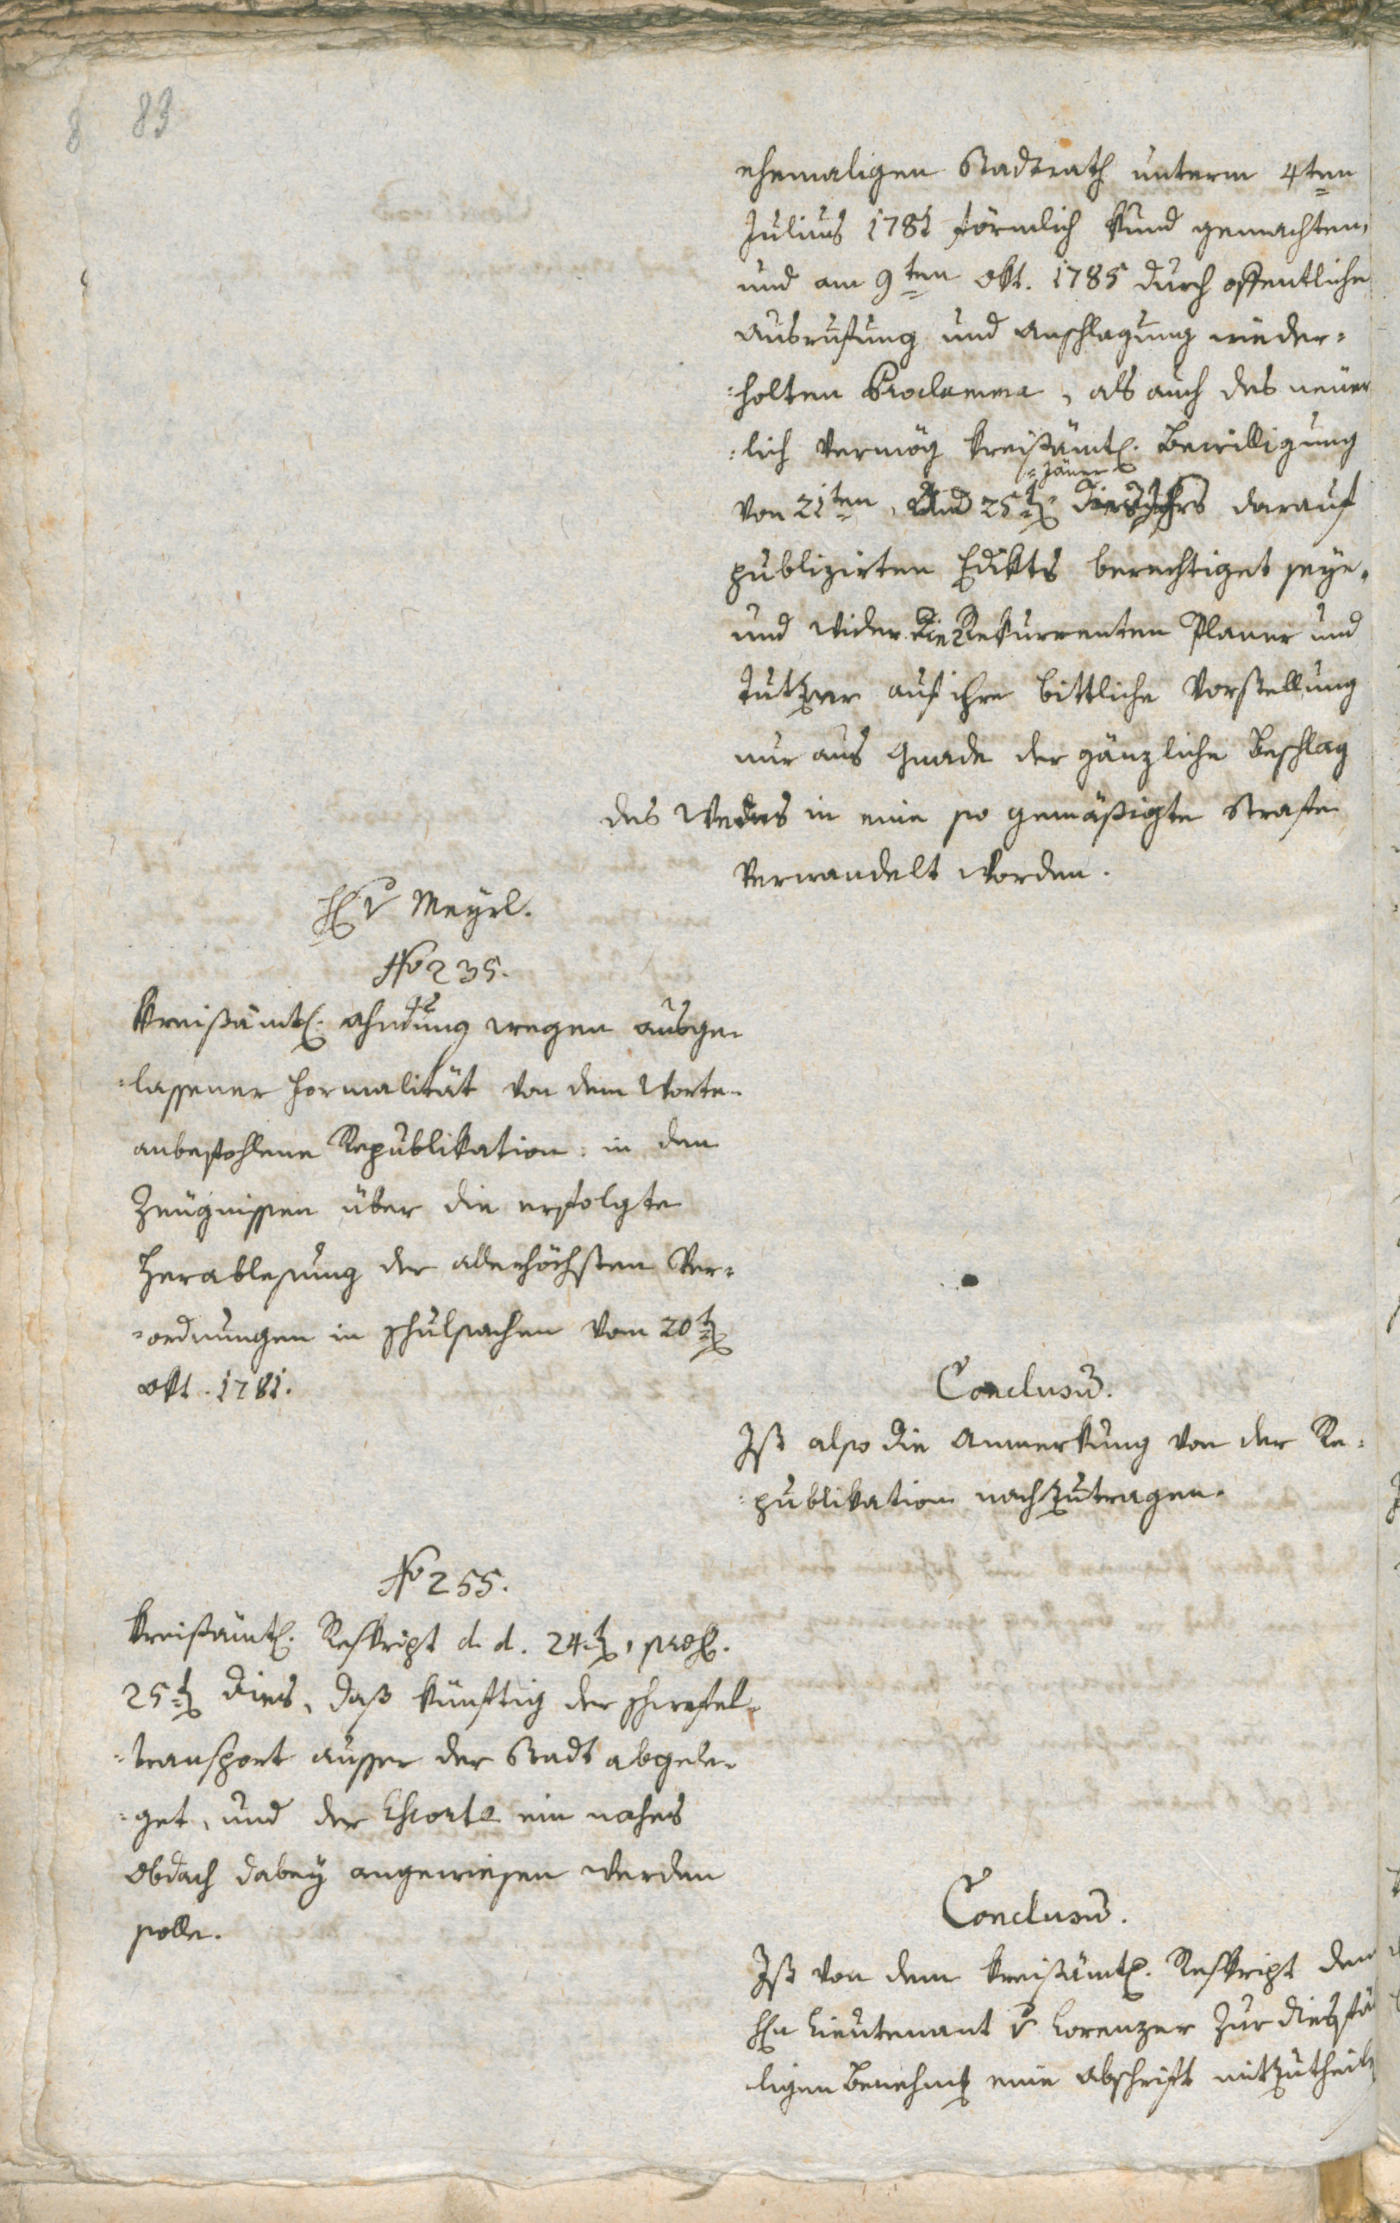 8 83
ehemaligen Stadtrath unterm 4ten
Julius 1781 förmlich kund gemachten,
und am 9ten Okt. 1785 durch offentliche
Ausrufung und Anschlagung wieder=
=holten Proclama, als auch des neuer
=lich vermög kreißämtl. Bewilligung
= Jäner
von 21ten, und 25t darauf
publizirten Edikts berechtiget seye,
und wider die Rekurrenten Planer und
Tutzer auf ihre bittliche Vorstellung
nur aus Gnade der gänzliche Beschlag
des in eine so gemäßigte Strafe
verwandelt worden.
H v Meyrl.
No 235.
Kreißämtl. Ahndung wegen ausge=
=lassener Formalität von dem Worte
anbefohlene Republikation: in den
Zeugnissen über die erfolgte
Herablesung der allerhöchsten Ver=
=ordnungen in Schulsachen vom 20t
Okt. 1781.
Conclusum.
Ist also die Anmerkung von der Re=
=publikation nachzutragen.
No 255.
Kreißämtl. Reskript d. d. 24t,
25t dies, daß künftig der Schießpulver=
=transport ausser der Stadt abgele=
=get, und der Escorte ein nahes
Obdach dabey angewiesen werden
solle.
Conclusum.
Ist von dem kreißämtl. Reskript dem
Hn Lieutenant v Lorenzer zur diesfä
ligen Benehmen eine Abschrift mitzutheilen